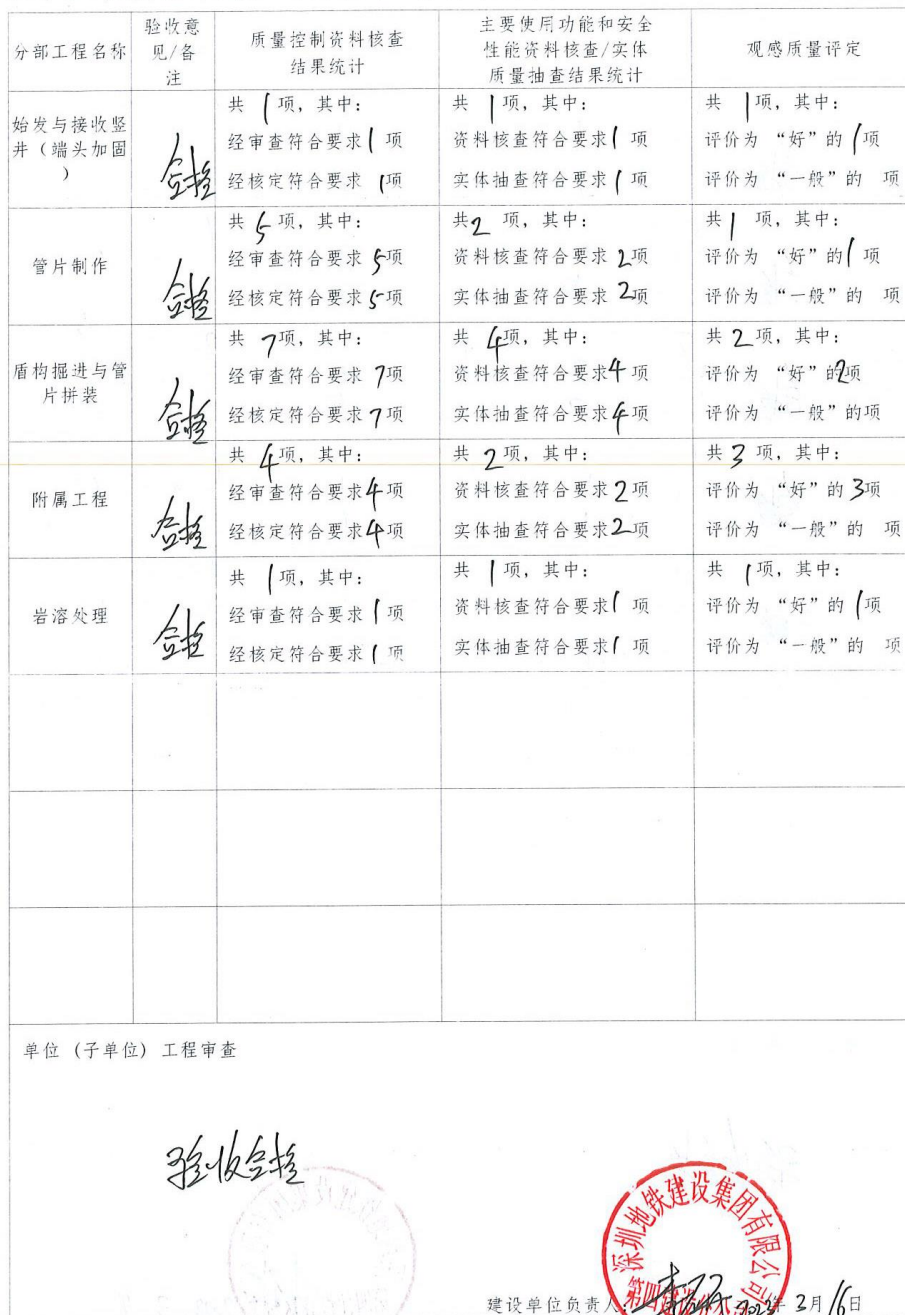 分部工程名称 验收意见/备注 质量控制资料核查结果统计 主要使用功能和安全性能资料核查/实体质量抽查结果统计 观感质量评定
始发与接收竖井（端头加固） 合格
共 1 项，其中：
经审查符合要求 1 项
经核定符合要求 1 项
共 1 项，其中：
资料核查符合要求 1 项
实体抽查符合要求 1 项
共 1 项，其中：
评价为 “好”的 1 项
评价为 “一般”的 项
管片制作 合格
共 5 项，其中：
经审查符合要求 5 项
经核定符合要求 5 项
共 2 项，其中：
资料核查符合要求 2 项
实体抽查符合要求 2 项
共 1 项，其中：
评价为 “好”的 1 项
评价为 “一般”的 项
盾构掘进与管片拼装 合格
共 7 项，其中：
经审查符合要求 7 项
经核定符合要求 7 项
共 4 项，其中：
资料核查符合要求 4 项
实体抽查符合要求 4 项
共 2 项，其中：
评价为 “好”的 2 项
评价为 “一般”的项
附属工程 合格
共 4 项，其中：
经审查符合要求 4 项
经核定符合要求 4 项
共 2 项，其中：
资料核查符合要求 2 项
实体抽查符合要求 2 项
共 3 项，其中：
评价为 “好”的 3 项
评价为 “一般”的 项
岩溶处理 合格
共 1 项，其中：
经审查符合要求 1 项
经核定符合要求 1 项
共 1 项，其中：
资料核查符合要求 1 项
实体抽查符合要求 1 项
共 1 项，其中：
评价为 “好”的 1 项
评价为 “一般”的 项
单位（子单位）工程审查
验收合格
深圳地铁建设集团有限公司
建设单位负责人： 年 3月 16日